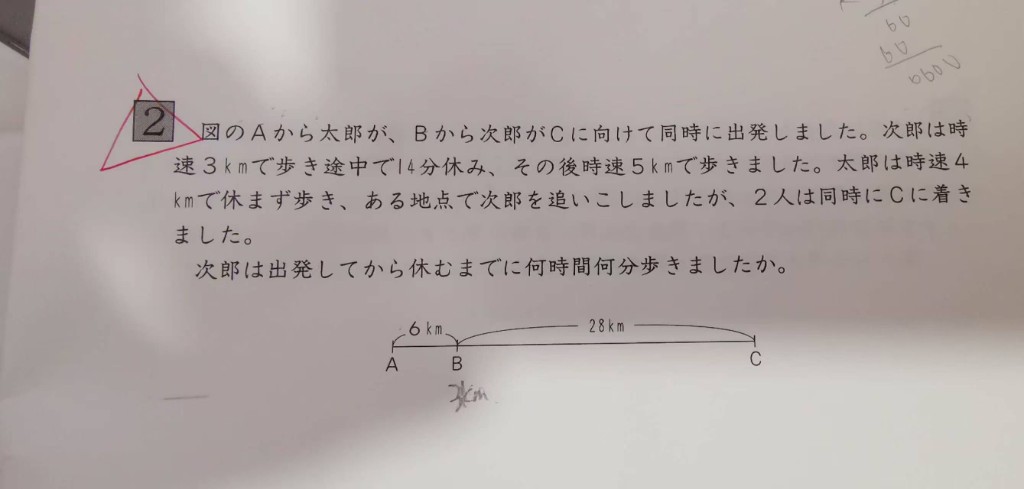 2 図のAから太郎が、Bから次郎がCに向けて同時に出発しました。次郎は時
速3kmで歩き途中で14分休み、その後時速5kmで歩きました。太郎は時速4
kmで休まず歩き、ある地点で次郎を追いこしましたが、2人は同時にCに着き
ました。
次郎は出発してから休むまでに何時間何分歩きましたか。
6km 28km
A B C